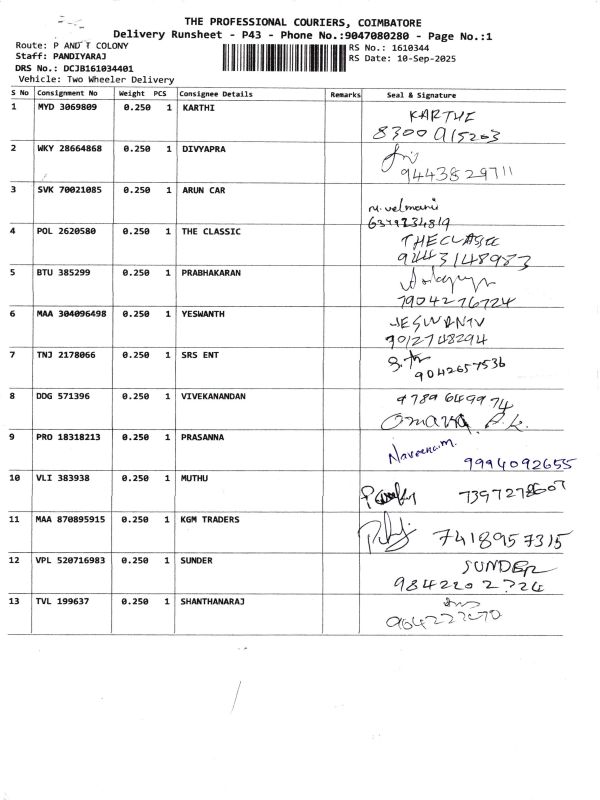 THE PROFESSIONAL COURIERS, COIMBATORE
Delivery Runsheet - P43 - Phone No.:9047080280 - Page No.:1
Route: P AND T COLONY
RS No.: 1610344
Staff: PANDIYARAJ
RS Date: 10-Sep-2025
DRS No.: DCJB161034401
Vehicle: Two Wheeler Delivery
S No Consignment No Weight PCS Consignee Details Remarks Seal & Signature
1 MYD 3069809 0.250 1 KARTHI KARTHI
8300915263
2 WKY 28664868 0.250 1 DIVYAPRA
9443829711
3 SVK 70021085 0.250 1 ARUN CAR
M. Velmani
6379234819
4 POL 2620580 0.250 1 THE CLASSIC THE CLASSIC
9443148983
5 BTU 385299 0.250 1 PRABHAKARAN
7904276724
6 MAA 304096498 0.250 1 YESWANTH
9012748294
7 TNJ 2178066 0.250 1 SRS ENT
9042657536
8 DDG 571396 0.250 1 VIVEKANANDAN 9789649974
9 PRO 18318213 0.250 1 PRASANNA Naveena.M.
9994092655
10 VLI 383938 0.250 1 MUTHU
11 MAA 870895915 0.250 1 KGM TRADERS
7418957315
12 VPL 520716983 0.250 1 SUNDER SUNDER
13 TVL 199637 0.250 1 SHANTHANARAJ